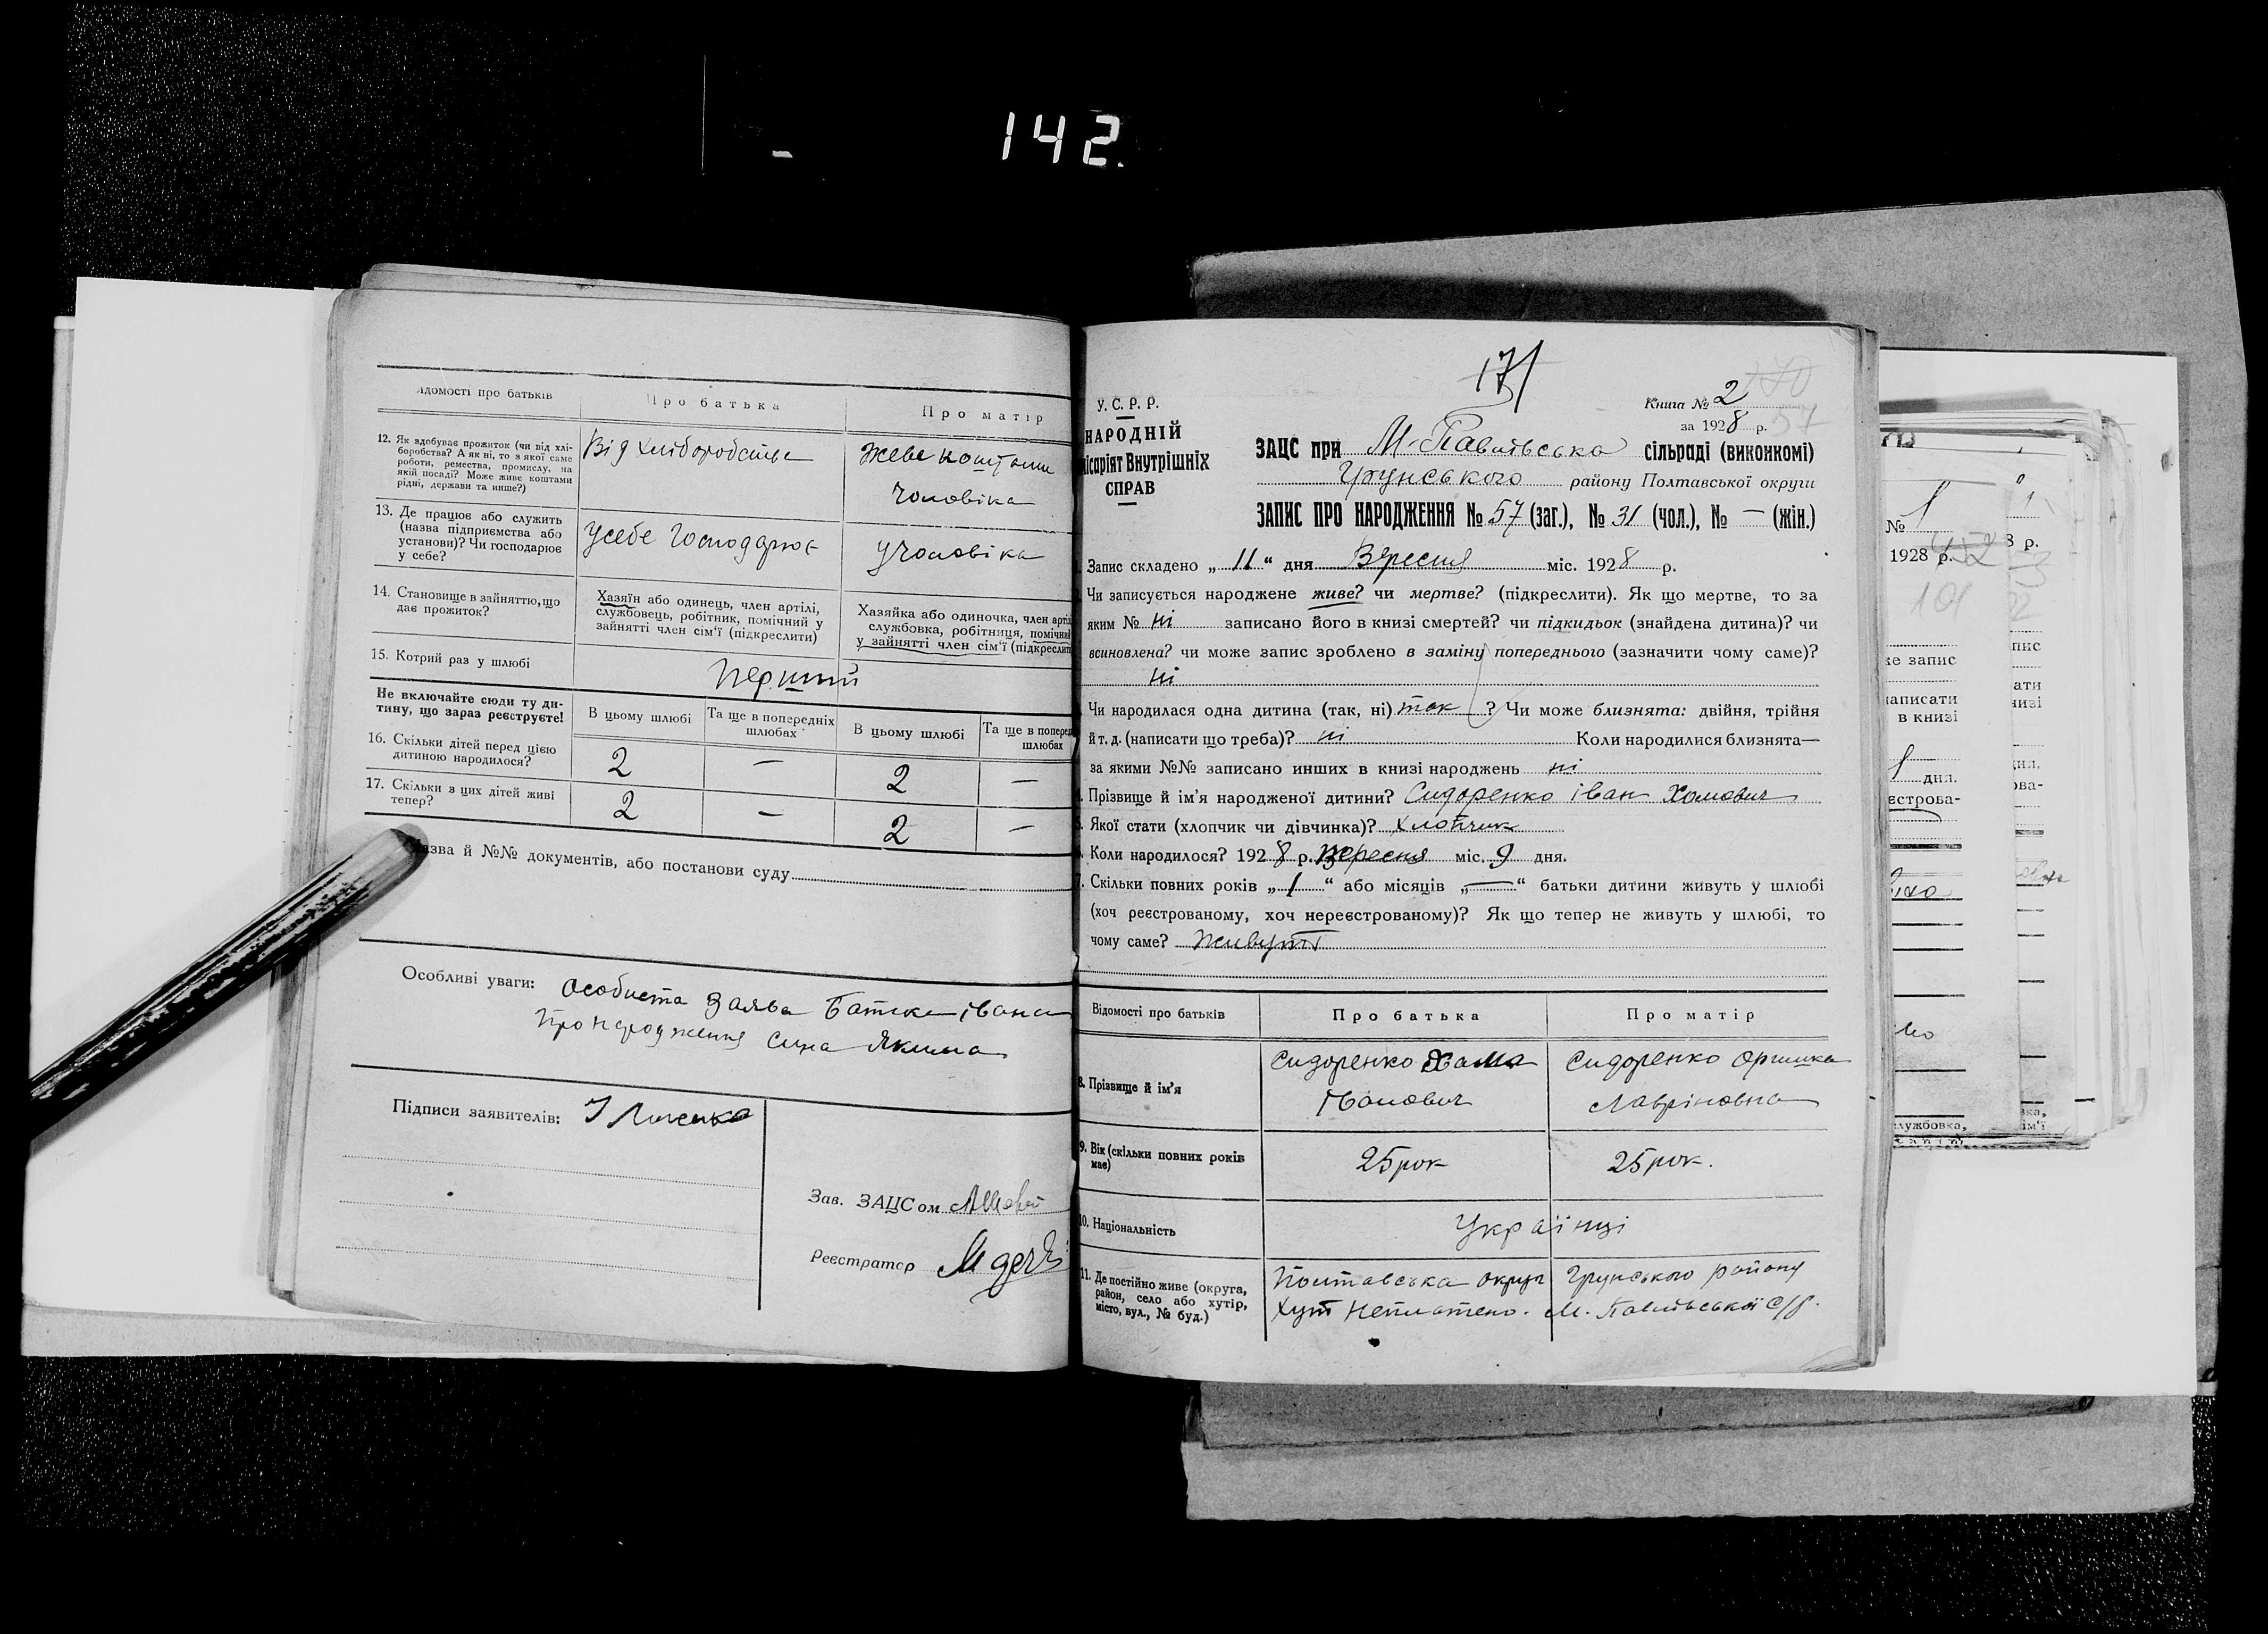 142.
Відомості про батьків
Про батька
Про матір
12. Як здобуває прожиток (чи від хлі-
боробства? А як ні, то з якої саме
роботи, ремества, промислу, на
якій посаді? Може живе коштами
рідні, держави та инше?)
Від хліборобства
Жеве коштами
чоловіка
13. Де працює або служить
(назва підприємства або
установи)? Чи господарює
у себе?
Усебе Господарює
У чоловіка
14. Становище в зайняттю, що
дає прожиток?
Хазяїн або одинець, член артілі,
службовець, робітник, помічний у
зайнятті член сім'ї (підкреслити)
Хазяйка або одиночка, член артіл
службовка, робітниця, помічний
у зайнятті член сім'ї (підкреслити
15. Котрий раз у шлюбі
Перший
Не включайте сюди ту ди-
тину, що зараз реєструєте!
В цьому шлюбі
Та ще в попередніх
шлюбах
В цьому шлюбі
Та ще в поперед
шлюбах
16. Скільки дітей перед цією
дитиною народилося?
2 — 2 —
17. Скільки з цих дітей живі
тепер?
2 — 2 —
азва й №№ документів, або постанови суду
Особливі уваги: Особиста Заява Батька Івана
Про народження сина Якима
Підписи заявителів:
Зав. ЗАЦСом
Реєстратор
171
У. С. Р. Р.
НАРОДНІЙ
ісаріят Внутрішніх
СПРАВ
Книга № 2
170
за 1928 р.
57
ЗАЦС при М-Павлівська сільраді (виконкомі)
Грунського району Полтавської округи
ЗАПИС ПРО НАРОДЖЕННЯ № 57 (заг.), № 31 (чол.), № — (жін.)
Запис складено „ 11 “ дня Вересня міс. 1928 р.
Чи записується народжене живе? чи мертве? (підкреслити). Як що мертве, то за
яким № ні записано його в книзі смертей? чи підкидьок (знайдена дитина)? чи
всиновлена? чи може запис зроблено в заміну попереднього (зазначити чому саме)?
ні
Чи народилася одна дитина (так, ні) так ? Чи може близнята: двійня, трійня
й т. д. (написати що треба)? ні Коли народилися близнята—
за якими №№ записано инших в книзі народжень ні
Прізвище й ім'я народженої дитини? Сидоренко Іван Хомович
Якої стати (хлопчик чи дівчинка)? Хлопчик
Коли народилося? 1928 р. Вересня міс. 9 дня.
7. Скільки повних років „ 1 “ або місяців „ — “ батьки дитини живуть у шлюбі
(хоч реєстрованому, хоч нереєстрованому)? Як що тепер не живуть у шлюбі, то
чому саме? Живуть
Відомості про батьків
Про батька
Про матір
8. Прізвище й ім'я
Сидоренко Хама
Іванович
Сидоренко Оришка
Лавріновна
9. Вік (скільки повних років
має)
25 рок
25 рок.
10. Національність
Українці
11. Де постійно живе (округа,
район, село або хутір,
місто, вул., № буд.)
Полтавська округи Грунського району
Хут М. Павлівської с/р.
№ 1
1928 р.
452
101
же запис
написати
в книзі
дня.
єстрова-
службовка,
1
8 р.
пис
ати
книзі
дня.
ова-
вка,
ім'ї